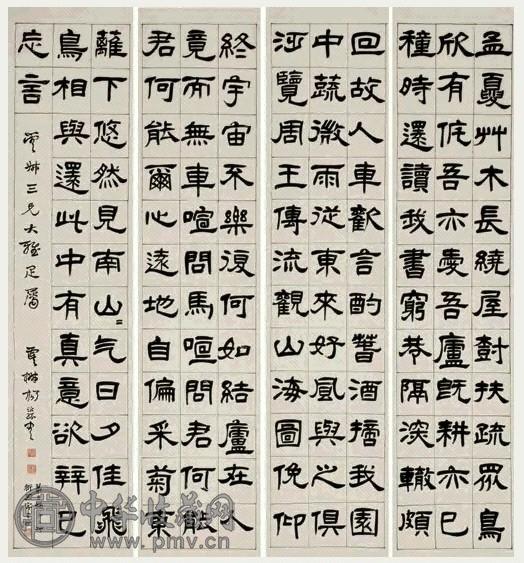 孟夏艸木長繞屋樹扶疏眾鳥
欣有託吾亦愛吾廬既耕亦已
種時還讀我書窮巷隔深轍頗
回故人車歡言酌春酒摘我園
中蔬微雨從東來好風與之俱
泛覽周王傳流觀山海圖俛仰
終宇宙不樂復何如結廬在人
竟而無車喧問馬喧問君何能
君何能爾心遠地自偏采菊東
離下悠然見南山〻气日夕佳飛
鳥相與還此中有真意欲辯已
忘言
三兄大雅
中华收藏网
www.pmv.cn